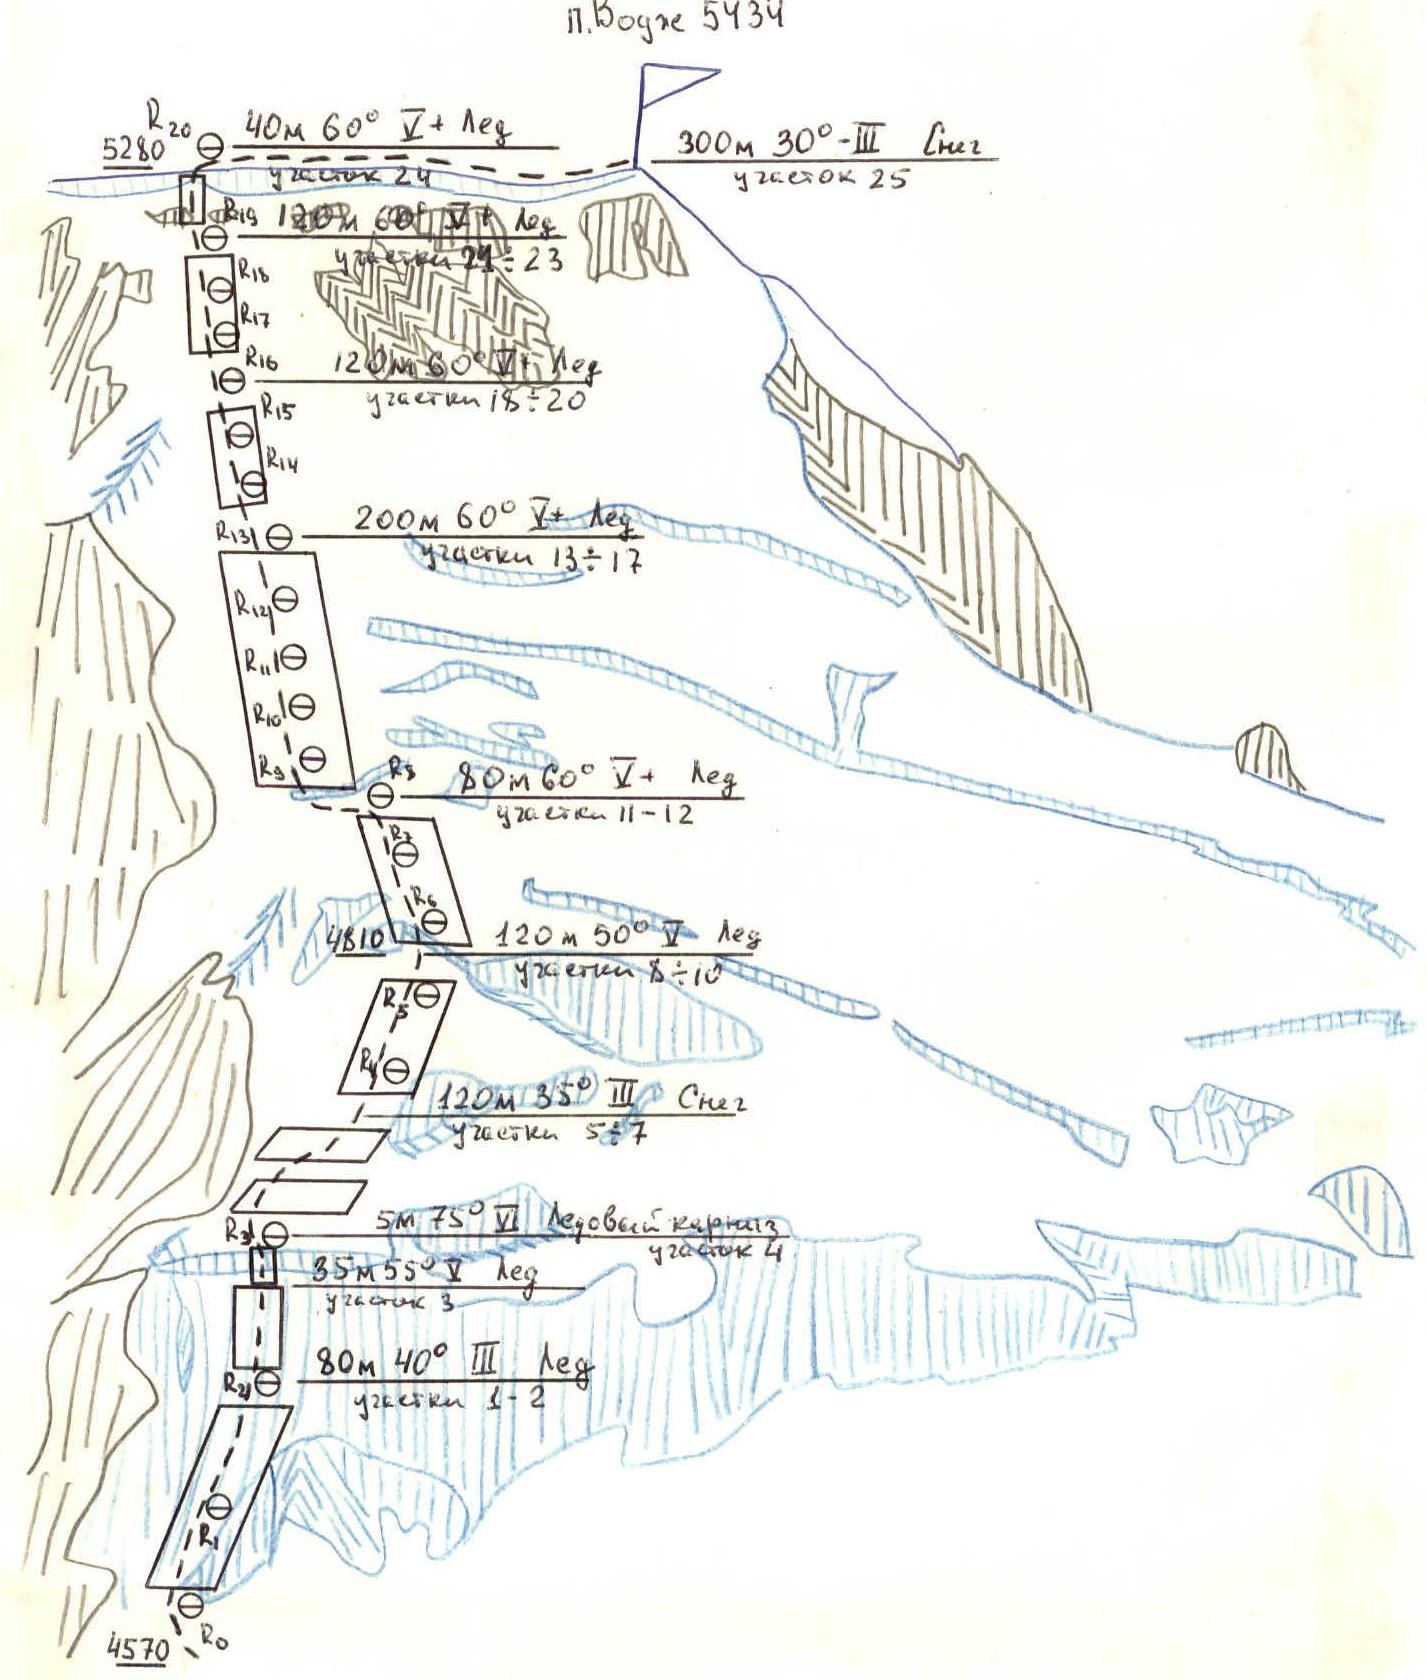 п. Водже 5434
R20 40м 60° V+ Лед
5280
участок 24
300м 30°-III Снег
участок 25
R19 120м 60° V+ Лед
участки 21÷23
R18
R17
R16 120м 60° V+ Лед
участки 18÷20
R15
R14
R13 200м 60° V+ Лед
участки 13÷17
R12
R11
R10
R9
R8 80м 60° V+ Лед
участки 11-12
R7
R6
4810 120м 50° V Лед
участки 8÷10
R5
R4
120м 35° III Снег
участки 5÷7
R3 5м 75° VI Ледовый карниз
участок 4
35м 55° V Лед
участок 3
R2 80м 40° III Лед
участки 1-2
R1
R0
4570